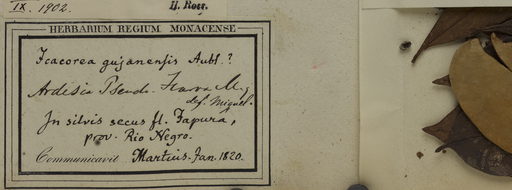 IX. 1902. H. Ross.
HERBARIUM REGIUM MONACENSE
Icacorea gujanensis Aubl.?
Ardisia Pseudo-Icacorea M.
det. Miquel.
In silvis secus fl. Japura,
prov. Rio Negro.
Communicavit Martius. Jan. 1820.